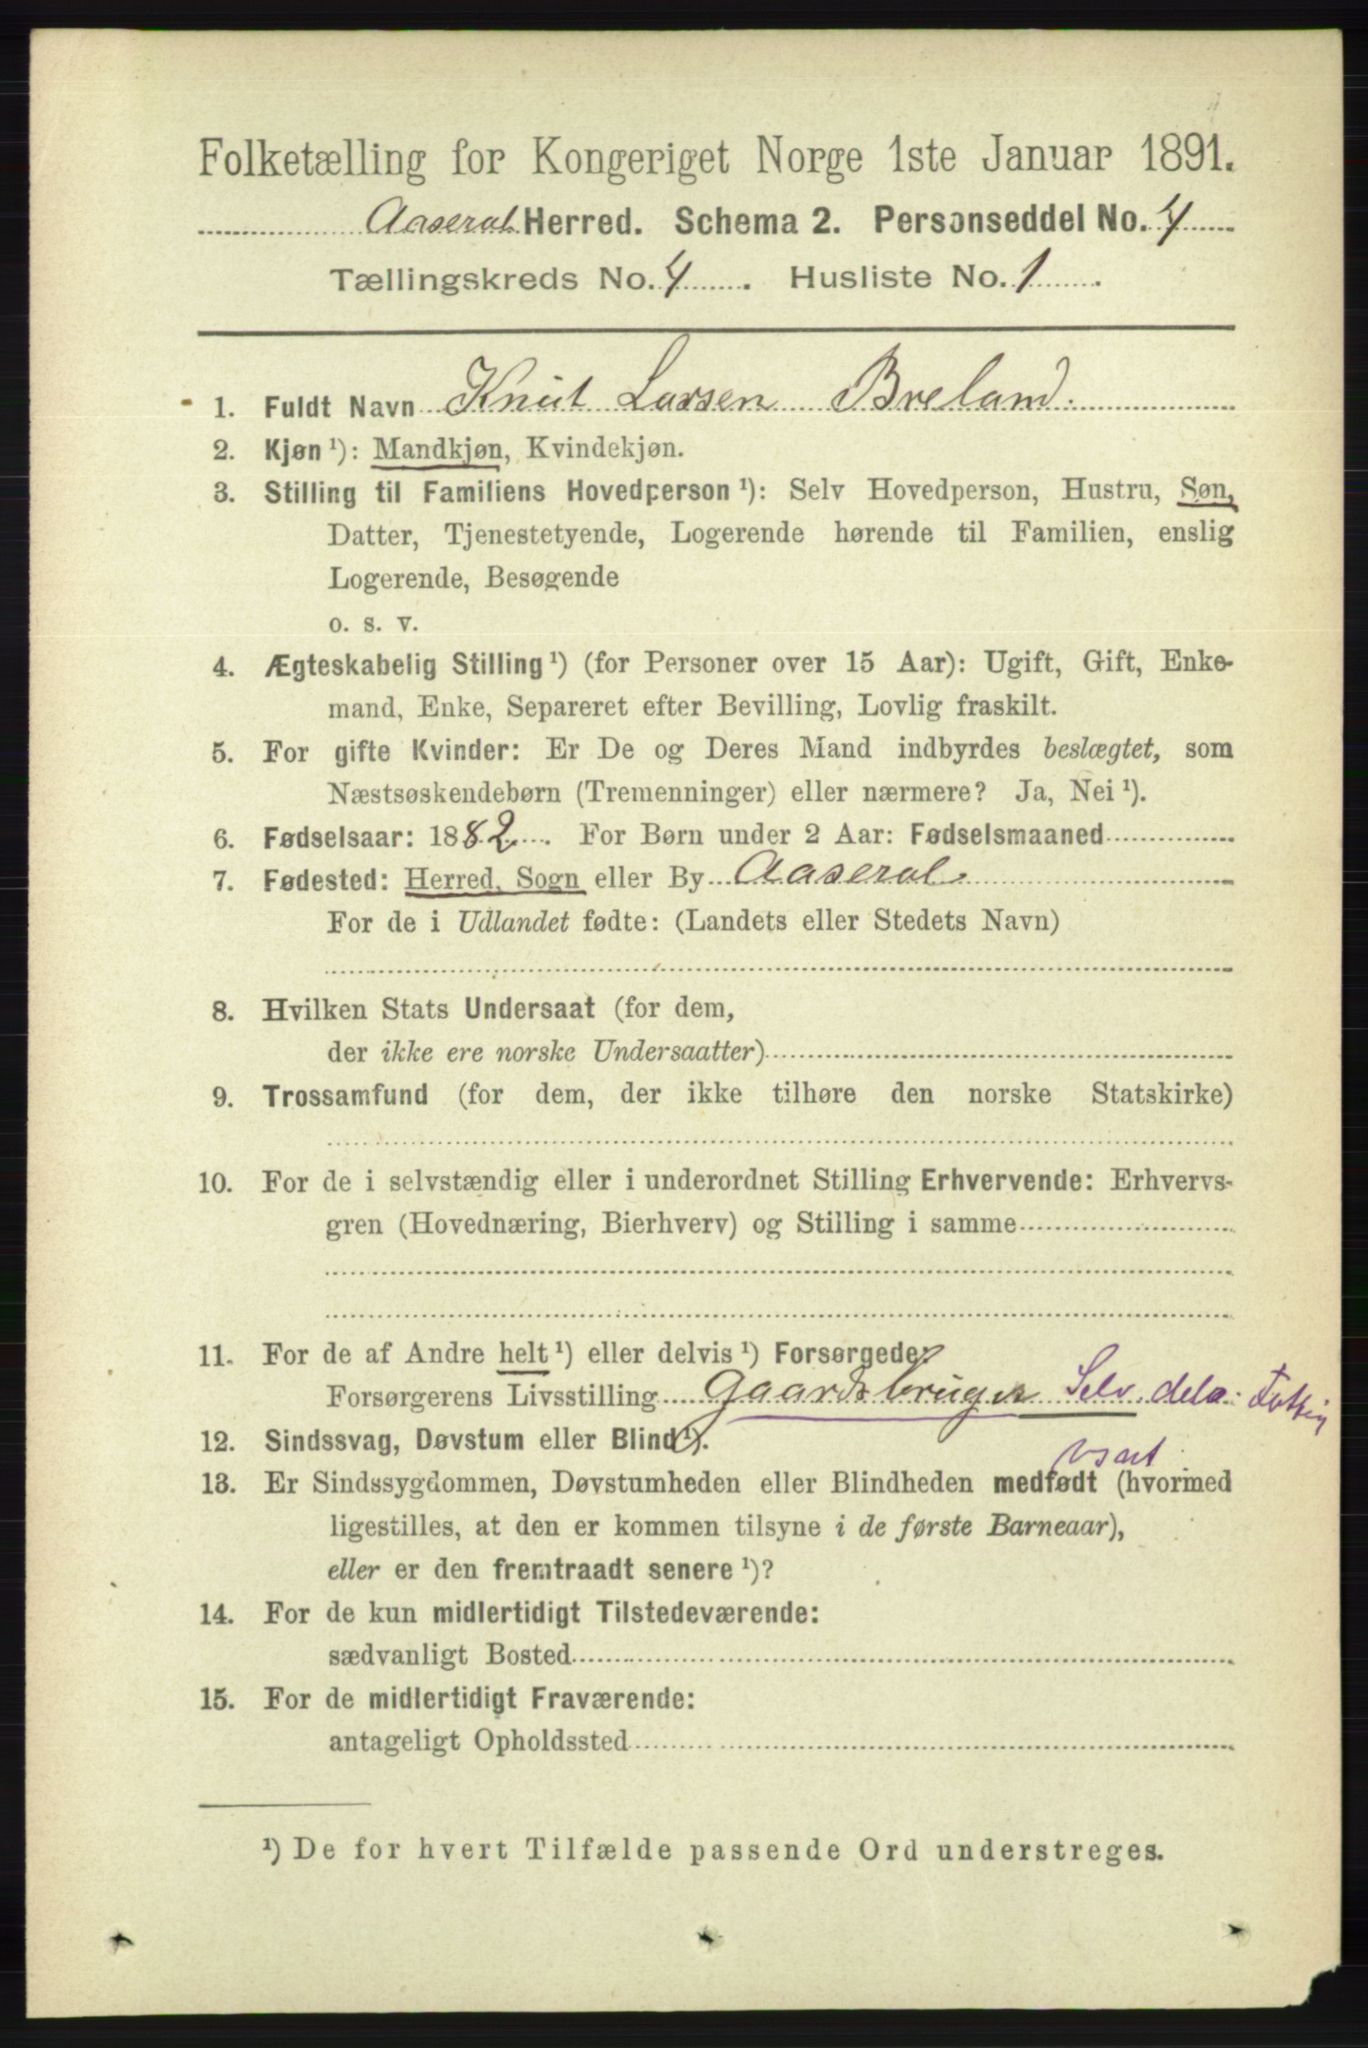 Folketælling for Kongeriget Norge 1ste Januar 1891.
Aaseral Herred. Schema 2. Personseddel No. 4
Tællingskreds No. 4. Husliste No. 1.
1. Fuldt Navn Knut Larsen Breland.
2. Kjøn ¹): Mandkjøn, Kvindekjøn.
3. Stilling til Familiens Hovedperson ¹): Selv Hovedperson, Hustru, Søn,
Datter, Tjenestetyende, Logerende hørende til Familien, enslig
Logerende, Besøgende
o. s. v.
4. Ægteskabelig Stilling ¹) (for Personer over 15 Aar): Ugift, Gift, Enke-
mand, Enke, Separeret efter Bevilling, Lovlig fraskilt.
5. For gifte Kvinder: Er De og Deres Mand indbyrdes beslægtet, som
Næstsøskendebørn (Tremenninger) eller nærmere? Ja, Nei ¹).
6. Fødselsaar: 1882. For Børn under 2 Aar: Fødselsmaaned
7. Fødested: Herred, Sogn eller By Aaseral.
For de i Udlandet fødte: (Landets eller Stedets Navn)
8. Hvilken Stats Undersaat (for dem,
der ikke ere norske Undersaatter)
9. Trossamfund (for dem, der ikke tilhøre den norske Statskirke)
10. For de i selvstændig eller i underordnet Stilling Erhvervende: Erhvervs-
gren (Hovednæring, Bierhverv) og Stilling i samme
11. For de af Andre helt ¹) eller delvis ¹) Forsørgede:
Forsørgerens Livsstilling Gaardsbruger Selv
12. Sindssvag, Døvstum eller Blind ¹).
13. Er Sindssygdommen, Døvstumheden eller Blindheden medfødt (hvormed
ligestilles, at den er kommen tilsyne i de første Barneaar),
eller er den fremtraadt senere ¹)?
14. For de kun midlertidigt Tilstedeværende:
sædvanligt Bosted
15. For de midlertidigt Fraværende:
antageligt Opholdssted
¹) De for hvert Tilfælde passende Ord understreges.